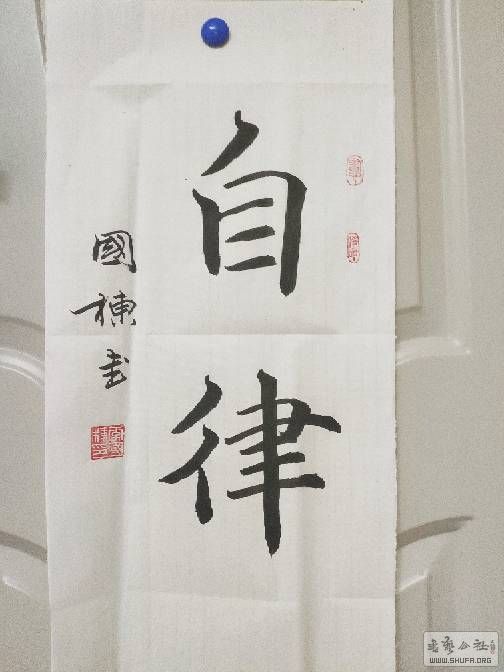 自律
國棟书
书艺公社
WWW.SHUFA.ORG